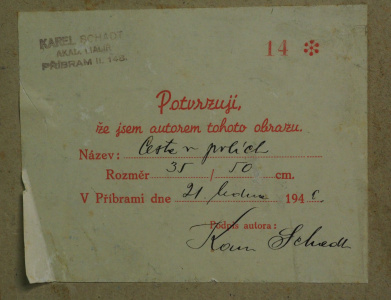 KAREL SCHADT
AKAD. MALÍŘ
PŘÍBRAM II. 148.
14 ✻
Potvrzuji,
že jsem autorem tohoto obrazu.
Název: Cesta v polích
Rozměr 35 / 50 cm.
V Příbrami dne 21 ledna 194
Podpis autora:
Schadt